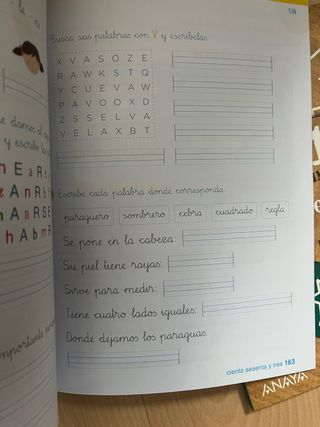 Busca seis palabras con V y escríbelas.
X V A S O Z E
R A W K S T Q
Y C U E V A W
P A V O O X D
Z S S E L V A
V E L A X B T
Escribe cada palabra donde corresponda.
paragüero sombrero cebra cuadrado regla
Se pone en la cabeza:
Su piel tiene rayas:
Sirve para medir:
Tiene cuatro lados iguales:
Donde dejamos los paraguas:
ciento sesenta y tres 163
ANAYA